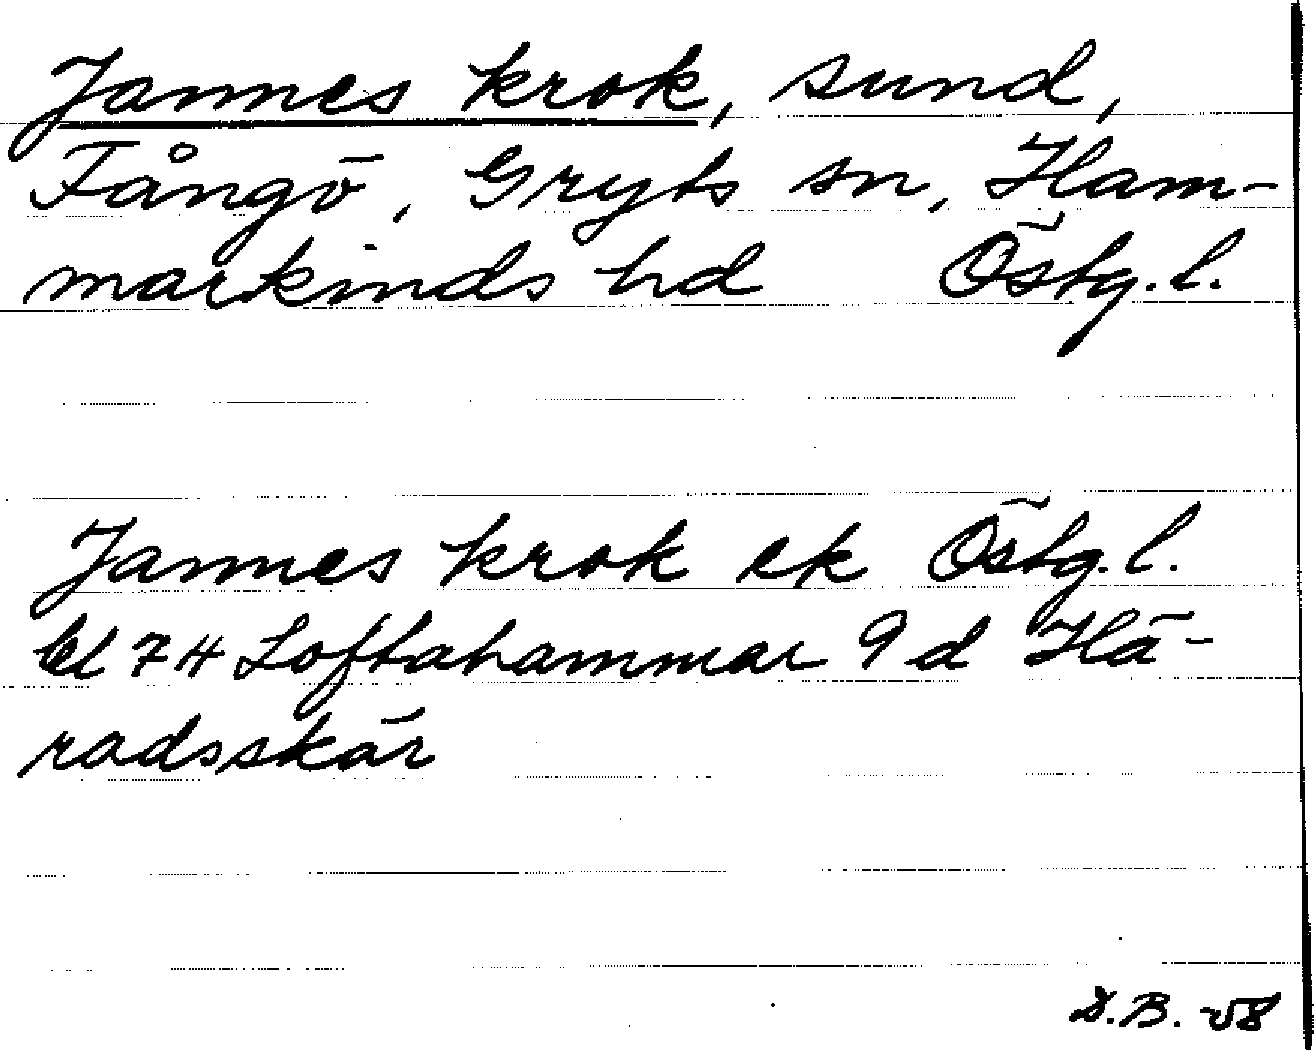 Jannes krok, sund,
Fångö, Gryts sn, Ham-
markinds hd Östg.l.
Jannes krok ek Östg.l.
bl 74 Loftahammar 9 d Hä-
radsskär
D.B. -58